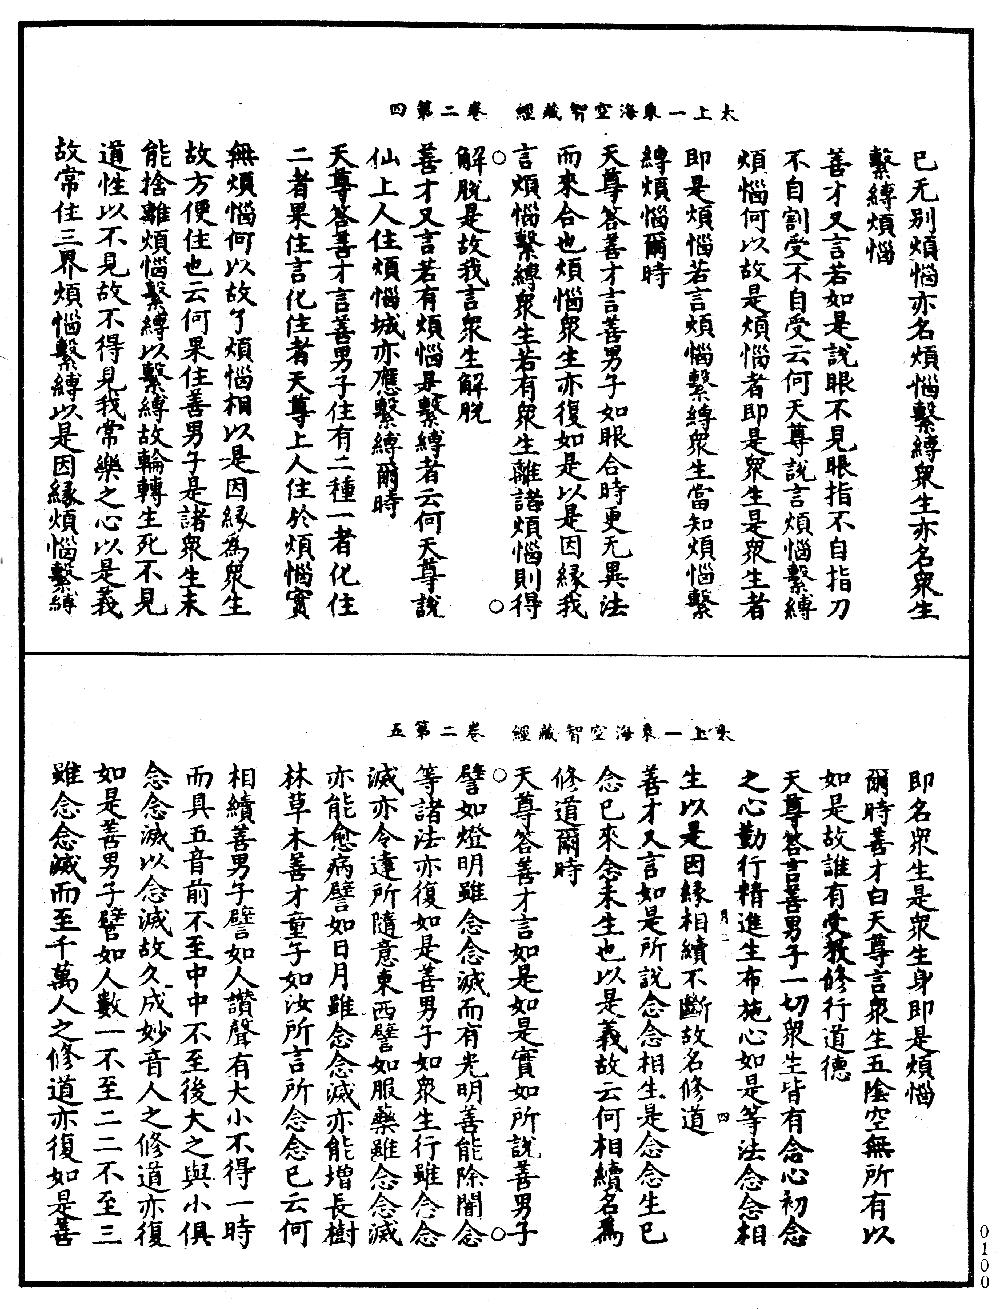 太上一乘海空智藏經　卷二第四
已无别煩惱亦名煩惱繫縛衆生亦名衆生
繫縛煩惱
善才又言若如是說眼不見眼指不自指刀
不自割受不自受云何天尊說言煩惱繫縛
煩惱何以故是煩惱者即是衆生是衆生者
即是煩惱若言煩惱繫縛衆生當知煩惱繫
縛煩惱爾時
天尊答善才言善男子如眼合時更无異法
而來合也煩惱衆生亦復如是以是因緣我
言煩惱繫縛衆生若有衆生離諸煩惱則得
解脫是故我言衆生解脫
善才又言若有煩惱是繫縛者云何天尊說
仙上人住煩惱城亦應繫縛爾時
天尊答善才言善男子住有二種一者化住
二者果住言化住者天尊上人住於煩惱實
無煩惱何以故了煩惱相以是因緣為衆生
故方便住也云何果住善男子是諸衆生未
能捨離煩惱繫縛以繫縛故輪轉生死不見
道性以不見故不得見我常樂之心以是義
故常住三界煩惱繫縛以是因緣煩惱繫縛
太上一乘海空智藏經　卷二第五
即名衆生是衆生身即是煩惱
爾時善才白天尊言衆生五陰空無所有以
如是故誰有受教修行道德
天尊答言善男子一切衆生皆有念心初念
之心勤行精進生布施心如是等法念念相
生以是因緣相續不斷故名修道
四
善才又言如是所說念念相生是念念生已
念已來念未生也以是義故云何相續名為
修道爾時
天尊答善才言如是如是實如所說善男子
譬如燈明雖念念滅而有光明善能除闇念
等諸法亦復如是善男子如衆生行雖念念
滅亦令達所隨意東西譬如服藥雖念念滅
亦能愈病譬如日月雖念念滅亦能增長樹
林草木善才童子如汝所言所念念已云何
相續善男子譬如人讚聲有大小不得一時
而具五音前不至中中不至後大之與小俱
念念滅以念滅故久成妙音人之修道亦復
如是善男子譬如人數一不至二二不至三
雖念念滅而至千萬人之修道亦復如是善
0100